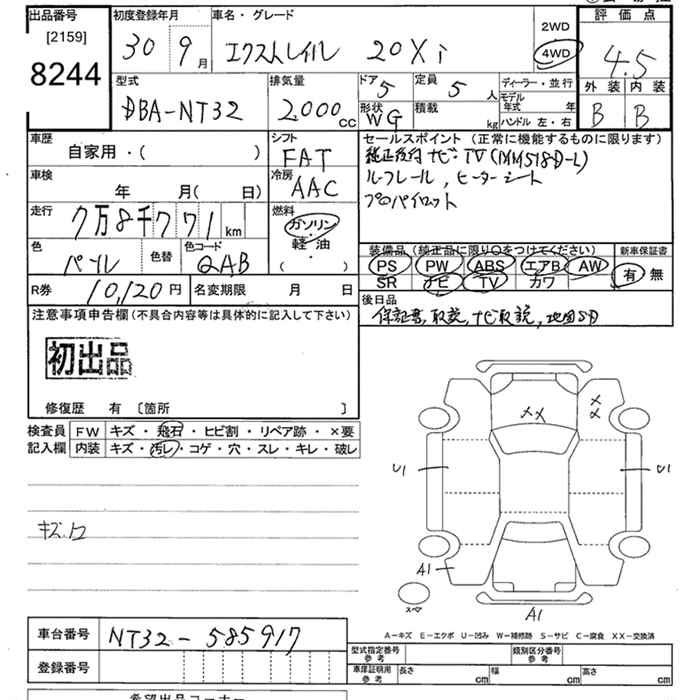 出品番号 [2159] 8244
初度登録年月 30 9月
車名・グレード エクストレイル 20Xi
2WD 4WD
評価点 4.5
外装 B 内装 B
型式 DBA-NT32
排気量 2,000 cc
ドア 5 定員 5 人
形状 WG 積載 kg
ディーラー・並行
モデル年式 年
ハンドル 左・右
車歴 自家用・( )
シフト FAT
車検 年 月( 日)
冷房 AAC
走行 7万8千771 km
燃料 ガソリン・軽油・( )
色 パール 色替 色コード QAB
R券 10,120円 名変期限 月 日
セールスポイント (正常に機能するものに限ります)
純正後付ナビ・TV (MM518D-L)
ルーフレール, ヒーターシート
プロパイロット
装備品 (純正品に限り○をつけてください)
PS PW ABS エアB AW
SR ナビ TV カワ
新車保証書 有 無
後日品
保証書, 取説, ナビ取説, 地図SD
注意事項申告欄 (不具合内容等は具体的に記入して下さい)
初出品
修復歴 有 〔箇所 〕
検査員記入欄
FW キズ・飛石・ヒビ割・リペア跡・×要
内装 キズ・汚レ・コゲ・穴・スレ・キレ・破レ
キズ.凹
X X
X X
U1 U1
A1
スペア
A1
A－キズ E－エクボ U－凹み W－補修跡 S－サビ C－腐食 XX－交換済
車台番号 NT32-585917
登録番号
型式指定番号 参考 類別区分番号 参考
車庫証明用 参考 長さ cm 幅 cm 高さ cm
希望出品コーナー